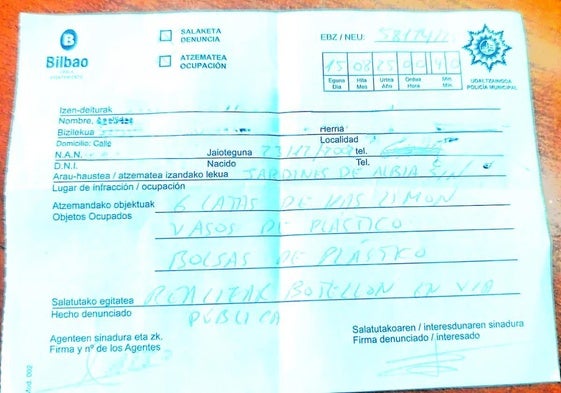 Bilbao
SALAKETA
DENUNCIA
ATZEMATEA
OCUPACIÓN
EBZ / NEU:
15 08 25 00 40
Eguna Hila Urtea Ordua Min.
Día Mes Año Hora Min.
UDALTZAINGOA
POLICÍA MUNICIPAL
Izen-deiturak
Nombre,
Bizilekua Herria
Domicilio: Calle Localidad
N.A.N. Jaioteguna tel.
D.N.I. Nacido Tel.
Arau-haustea / atzematea izandako lekua JARDINES DE ALBIA S/N
Lugar de infracción / ocupación
Atzemandako objektuak 6 LATAS DE KAS LIMON
Objetos Ocupados VASOS DE PLÁSTICO
BOLSAS DE PLÁSTICO
Salatutako egitatea REALIZAR BOTELLON EN VIA
Hecho denunciado PÚBLICA
Agenteen sinadura eta zk. Salatutakoaren / interesdunaren sinadura
Firma y nº de los Agentes Firma denunciado / interesado
Mod. 002